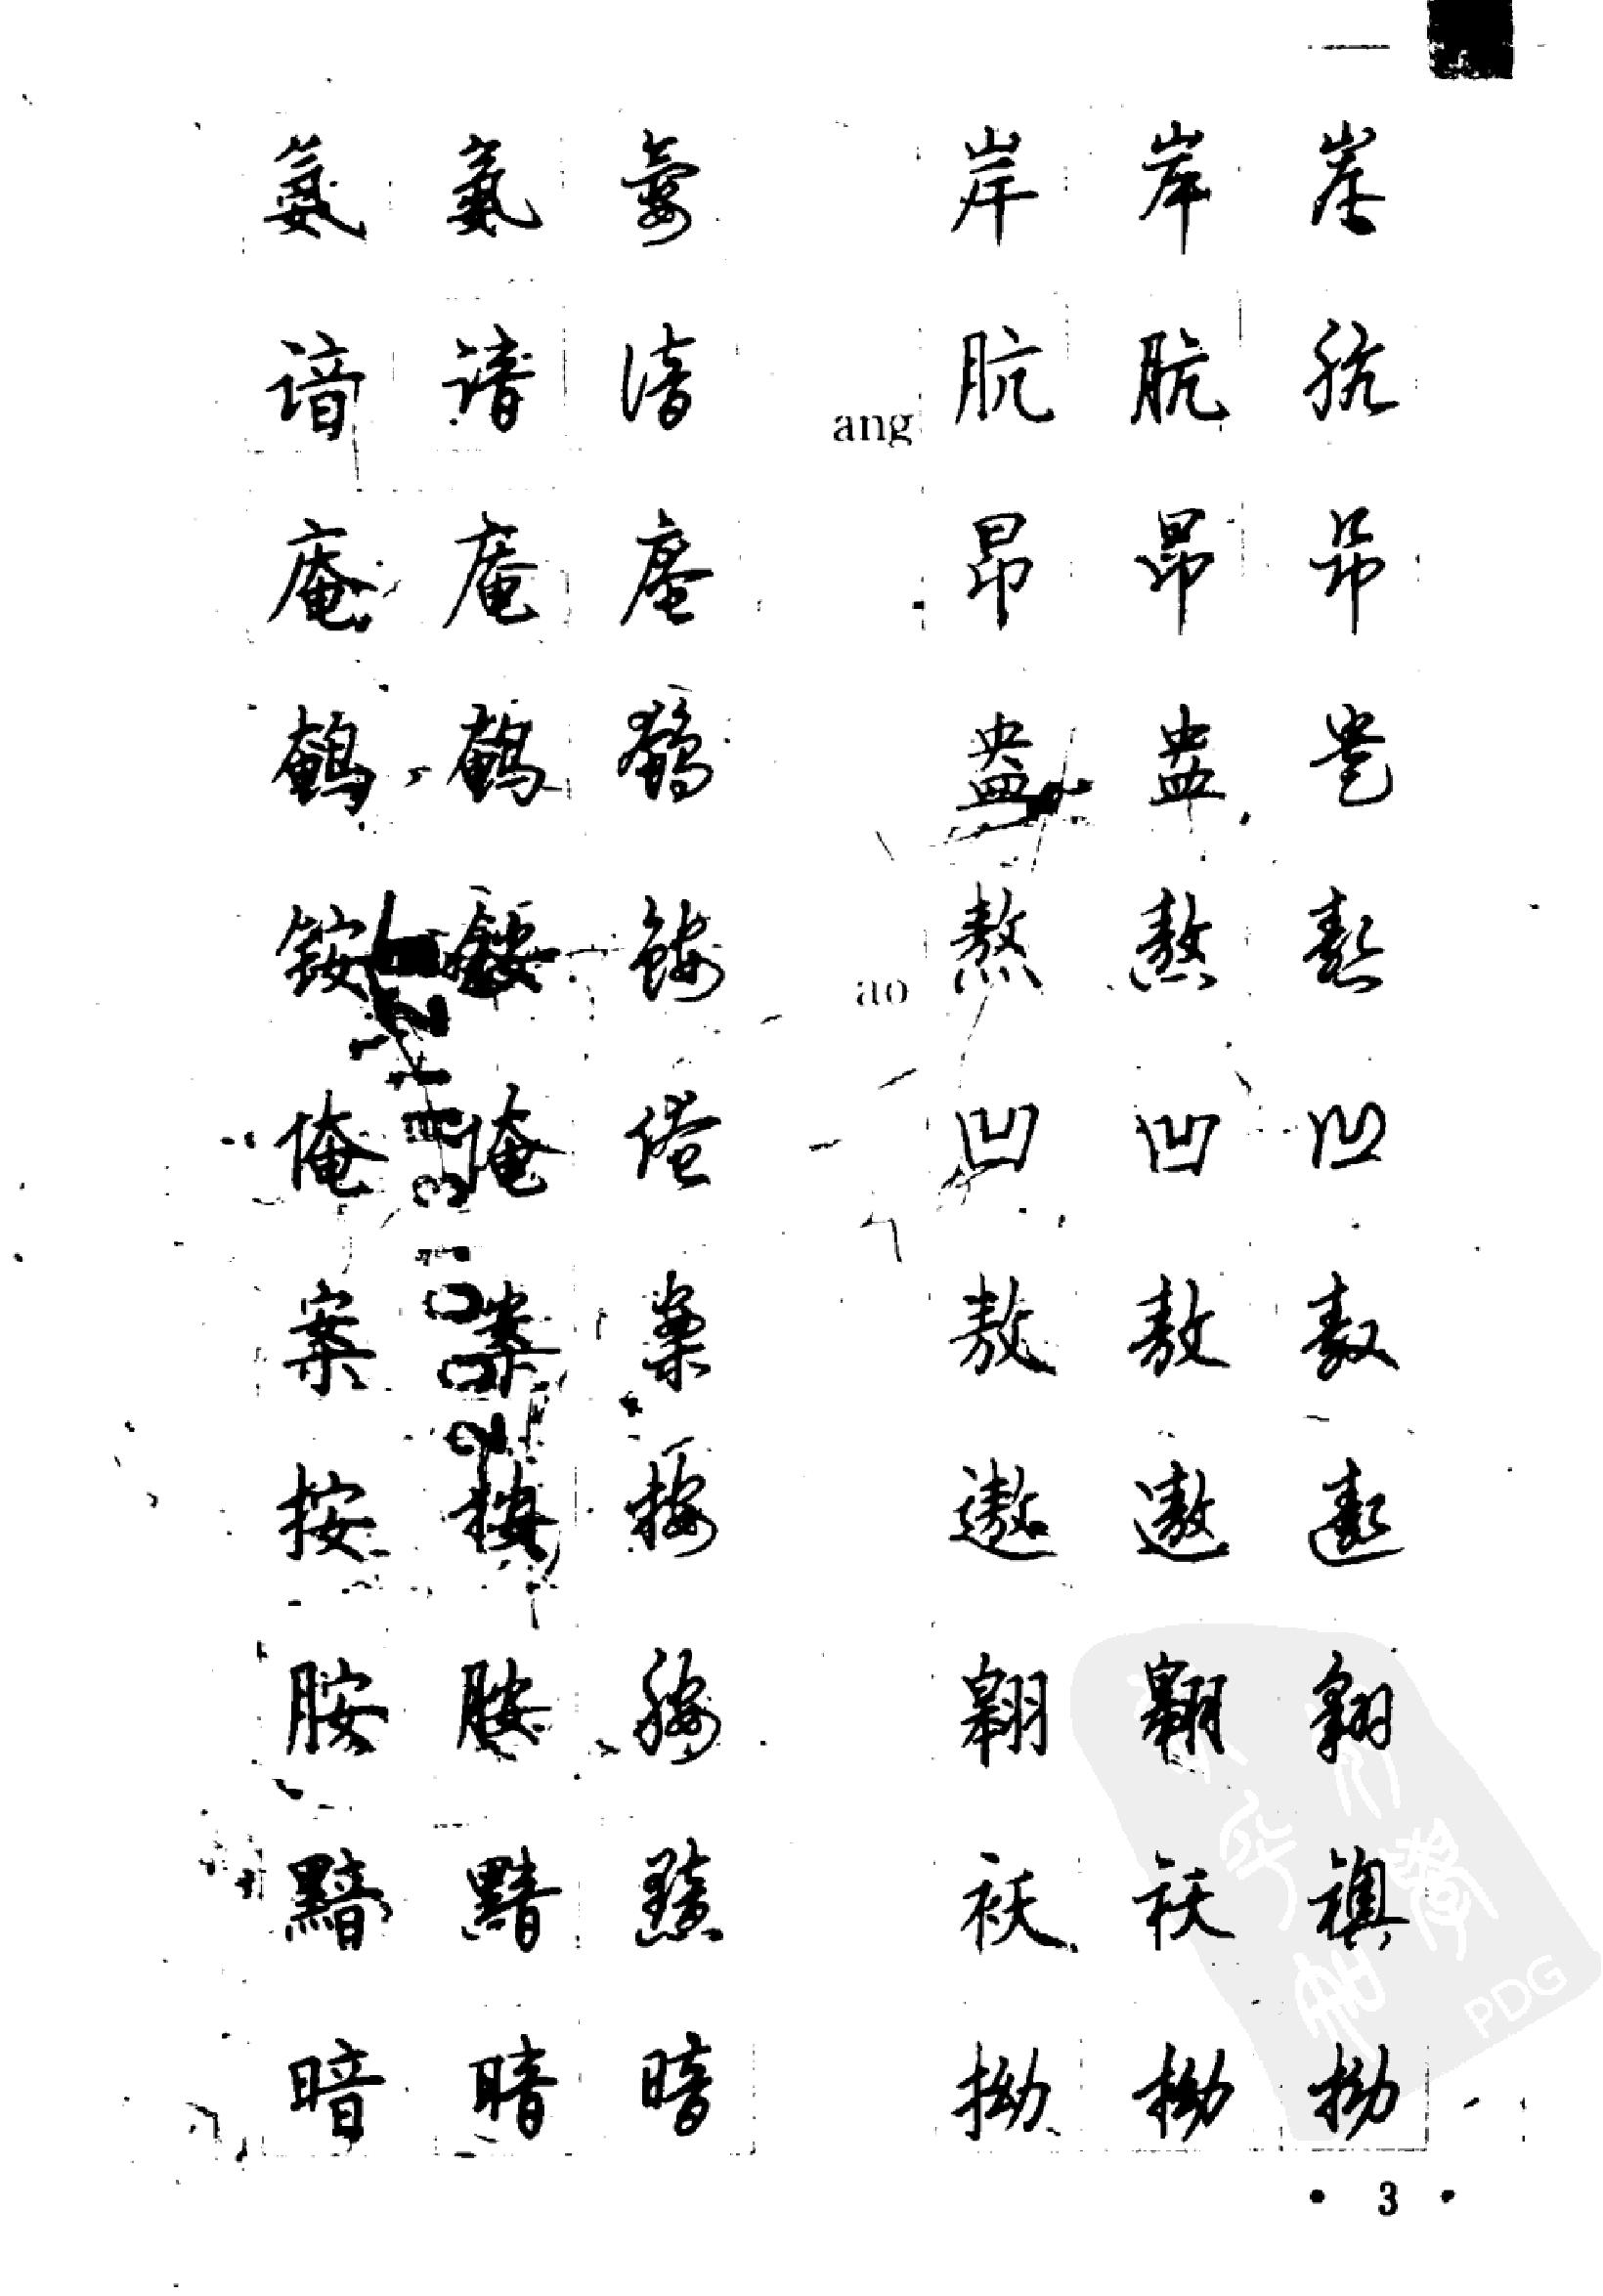 氨 氨 氨
谙 谙 谙
庵 庵 庵
鹌 鹌 鹌
铵 铵 铵
俺 俺 俺
案 案 案
按 按 按
胺 胺 胺
黯 黯 黯
暗 暗 暗
岸 岸 岸
ang 肮 肮 肮
昂 昂 昂
盎 盎 盎
ao 熬 熬 熬
凹 凹 凹
敖 敖 敖
遨 遨 遨
翱 翱 翱
袄 袄 袄
拗 拗 拗
PDG
• 3 •